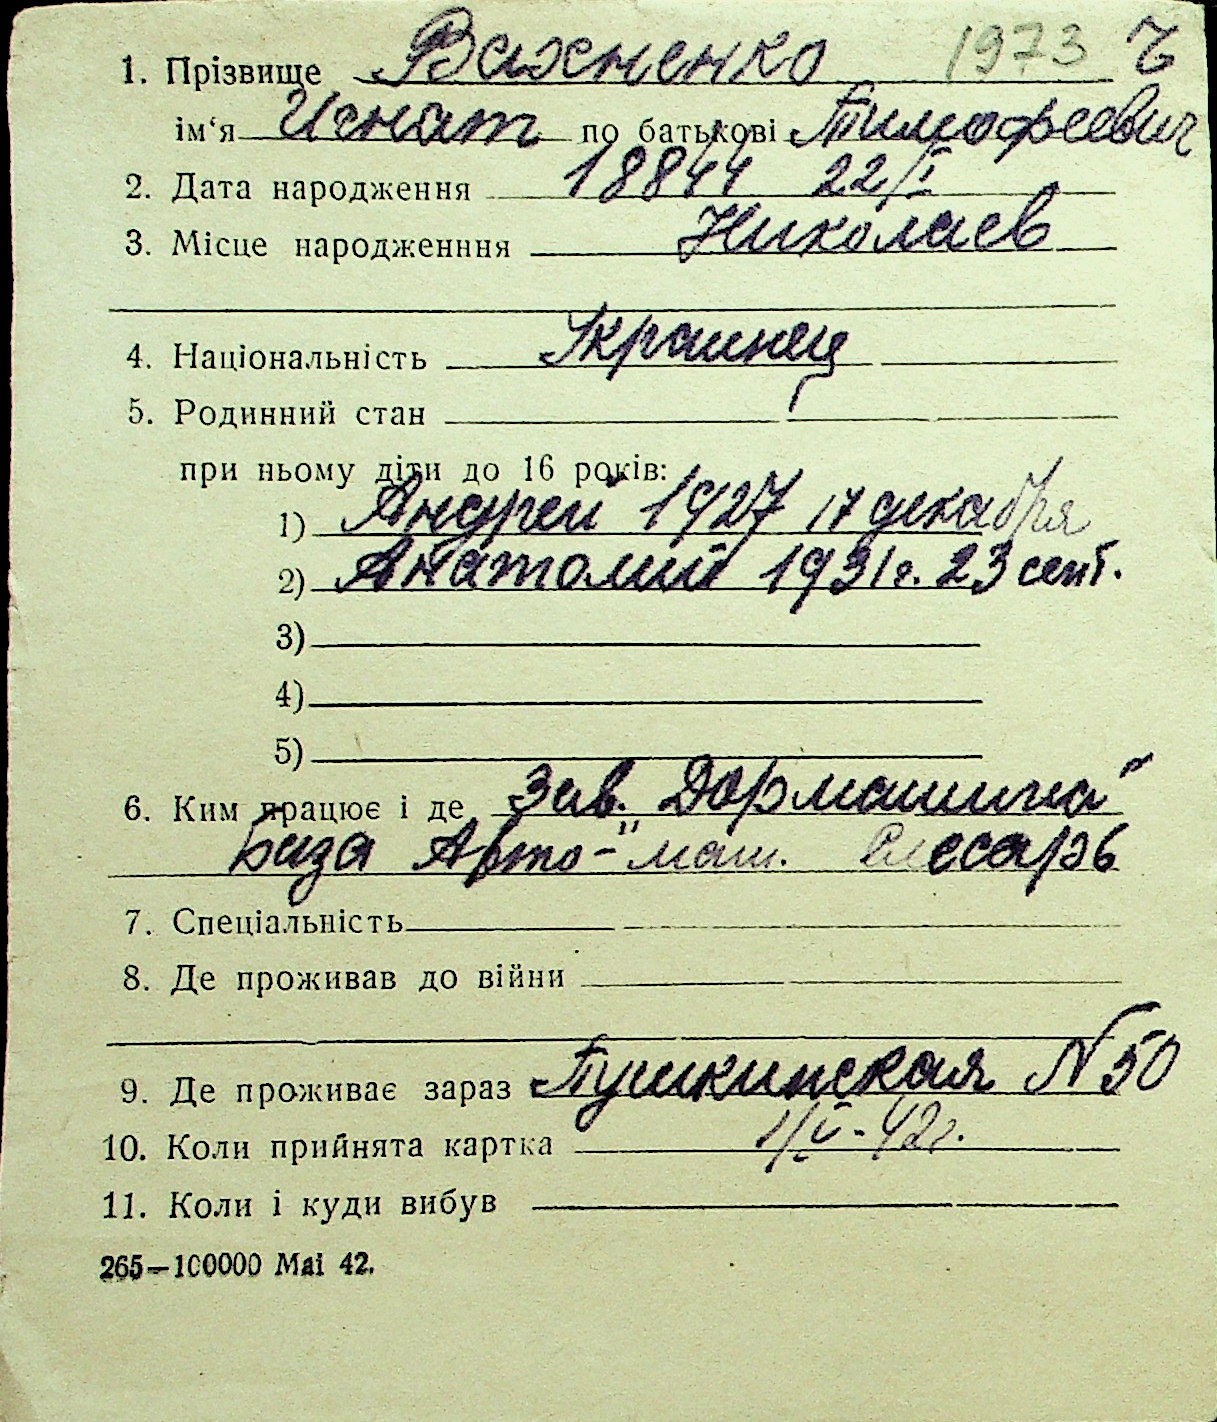 1. Прізвище Вахненко 1973
ім‘я Игнат по батькові Тимофеевич
2. Дата народження 18844 22/I
3. Місце народженння Николаев
4. Національність Украинец
5. Родинний стан
при ньому діти до 16 років:
1) Андрей 1927 17 декабря
2) Анатолий 1931г. 23 сент.
3)
4)
5)
6. Ким працює і де Зав. "Дормашина"
База Авто-маш. Слесарь
7. Спеціальність
8. Де проживав до війни
9. Де проживає зараз Пушкинская N 50
10. Коли прийнята картка 42г.
11. Коли і куди вибув
265—100000 Mai 42.